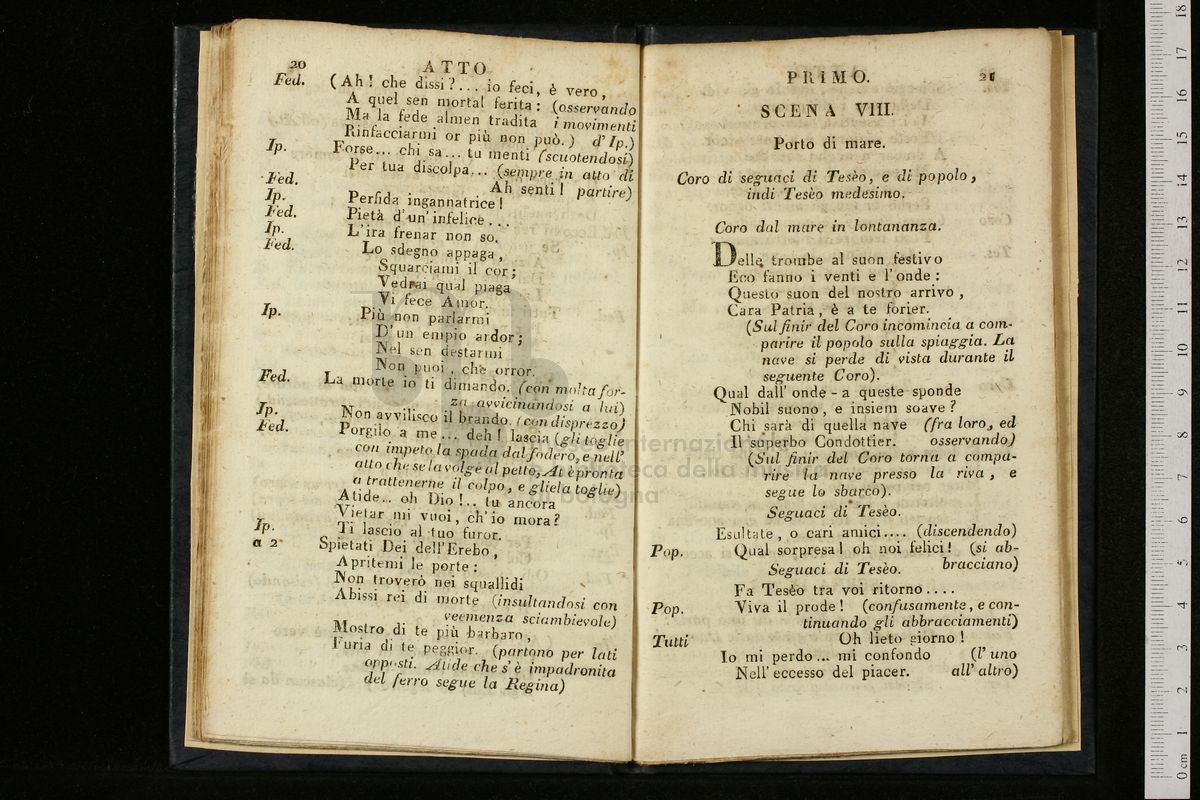 20
ATTO
Fed. (Ah! che dissi?... io feci, è vero,
A quel sen mortal ferita: (osservando
Ma la fede almen tradita i movimenti
Rinfacciarmi or più non può.) d'Ip.)
Ip. Forse... chi sa... tu menti (scuotendosi)
Per tua discolpa... (sempre in atto di
Fed. Ah senti! partire)
Ip. Perfida ingannatrice!
Fed. Pietà d'un'infelice...
Ip. L'ira frenar non so.
Fed. Lo sdegno appaga,
Squarciami il cor;
Vedrai qual piaga
Vi fece Amor.
Ip. Più non parlarmi
D'un empio ardor;
Nel sen destarmi
Non puoi, che orror.
Fed. La morte io ti dimando. (con molta for-
za avvicinandosi a lui)
Ip. Non avvilisco il brando. (con disprezzo)
Fed. Porgilo a me... deh! lascia (gli toglie
con impeto la spada dal fodero, e nell'
atto che se la volge al petto, At è pronta
a trattenerne il colpo, e gliela toglie)
Atide.. oh Dio!.. tu ancora
Vietar mi vuoi, ch'io mora?
Ip. Ti lascio al tuo furor.
a 2 Spietati Dei dell'Erebo,
Apritemi le porte:
Non troverò nei squallidi
Abissi rei di morte (insultandosi con
veemenza sciambievole)
Mostro di te più barbaro,
Furia di te peggior. (partono per lati
opposti. Atide che s'è impadronita
del ferro segue la Regina)
PRIMO. 21
SCENA VIII.
Porto di mare.
Coro di seguaci di Tesèo, e di popolo,
indi Tesèo medesimo.
Coro dal mare in lontananza.
Delle trombe al suon festivo
Eco fanno i venti e l'onde:
Questo suon del nostro arrivo,
Cara Patria, è a te forier.
(Sul finir del Coro incomincia a com-
parire il popolo sulla spiaggia. La
nave si perde di vista durante il
seguente Coro).
Qual dall'onde - a queste sponde
Nobil suono, e insiem soave?
Chi sarà di quella nave (fra loro, ed
Il superbo Condottier. osservando)
(Sul finir del Coro torna a compa-
rire la nave presso la riva, e
segue lo sbarco).
Seguaci di Tesèo.
Esultate, o cari amici.... (discendendo)
Pop. Qual sorpresa! oh noi felici! (si ab-
Seguaci di Tesèo. bracciano)
Fa Tesèo tra voi ritorno....
Pop. Viva il prode! (confusamente, e con-
tinuando gli abbracciamenti)
Tutti Oh lieto giorno!
Io mi perdo... mi confondo (l'uno
Nell'eccesso del piacer. all'altro)
internazionale
biblioteca della musica
bologna
0 cm 1 2 3 4 5 6 7 8 9 10 11 12 13 14 15 16 17 18